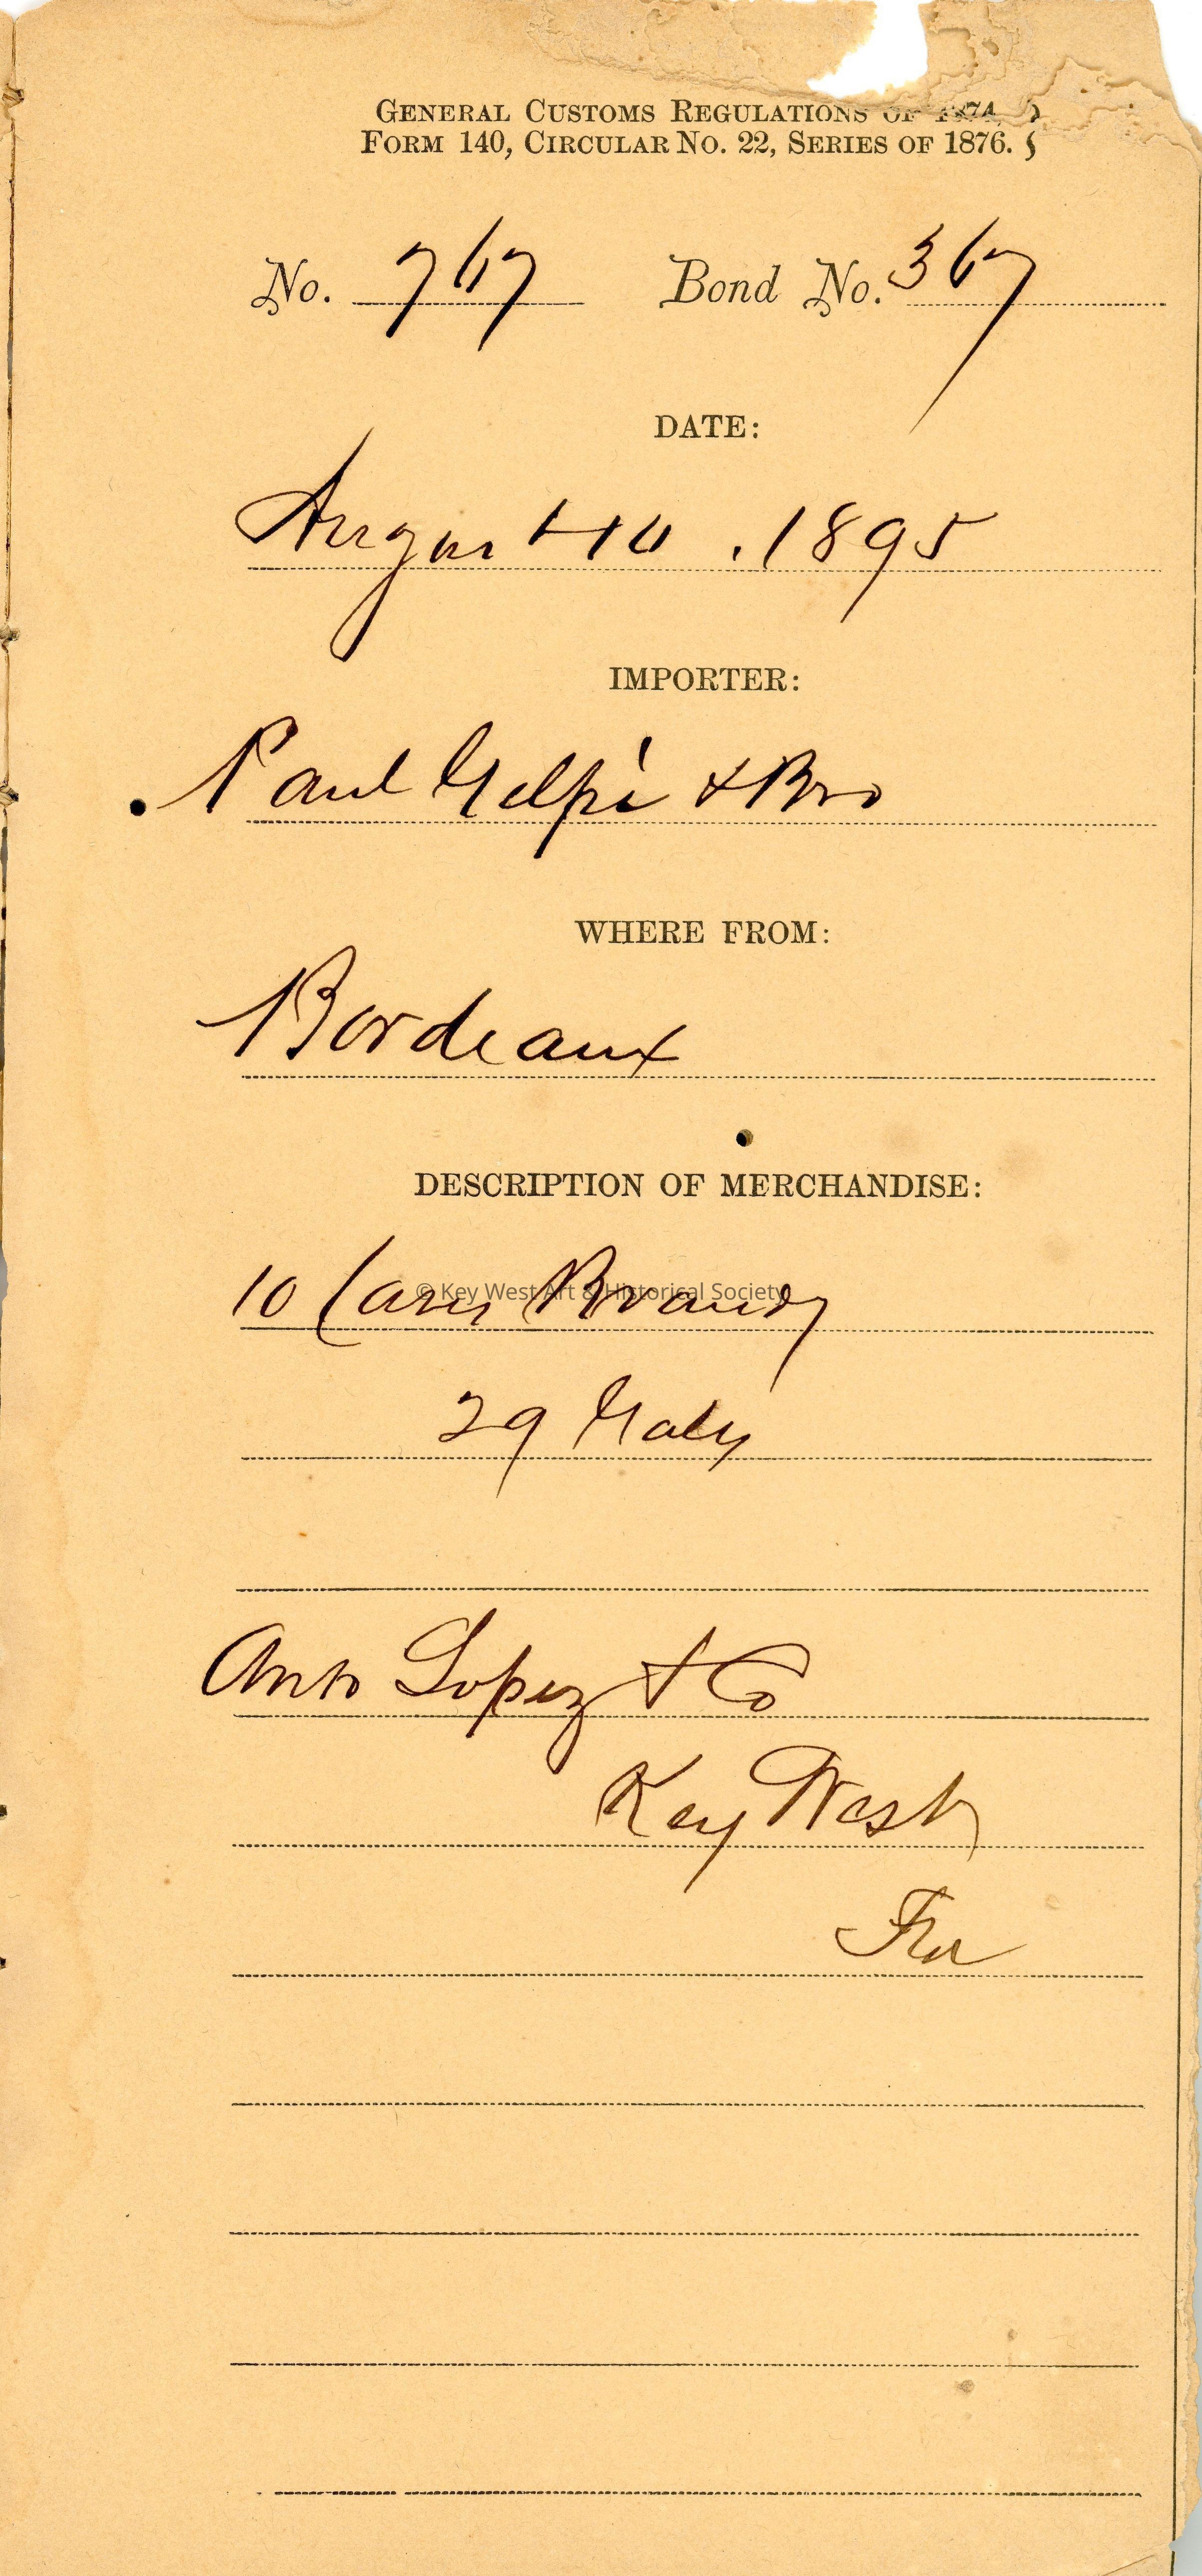 GENERAL CUSTOMS REGULATIONS OF 1874,
FORM 140, CIRCULAR NO. 22, SERIES OF 1876.
No. 767 Bond No. 367
DATE:
August 10, 1895
IMPORTER:
Paul Gelpi & Bro
WHERE FROM:
Bordeaux
DESCRIPTION OF MERCHANDISE:
10 Cases Brandy
© Key West Art & Historical Society
29 Gals
Anto Lopez & Co
Key West
Fla